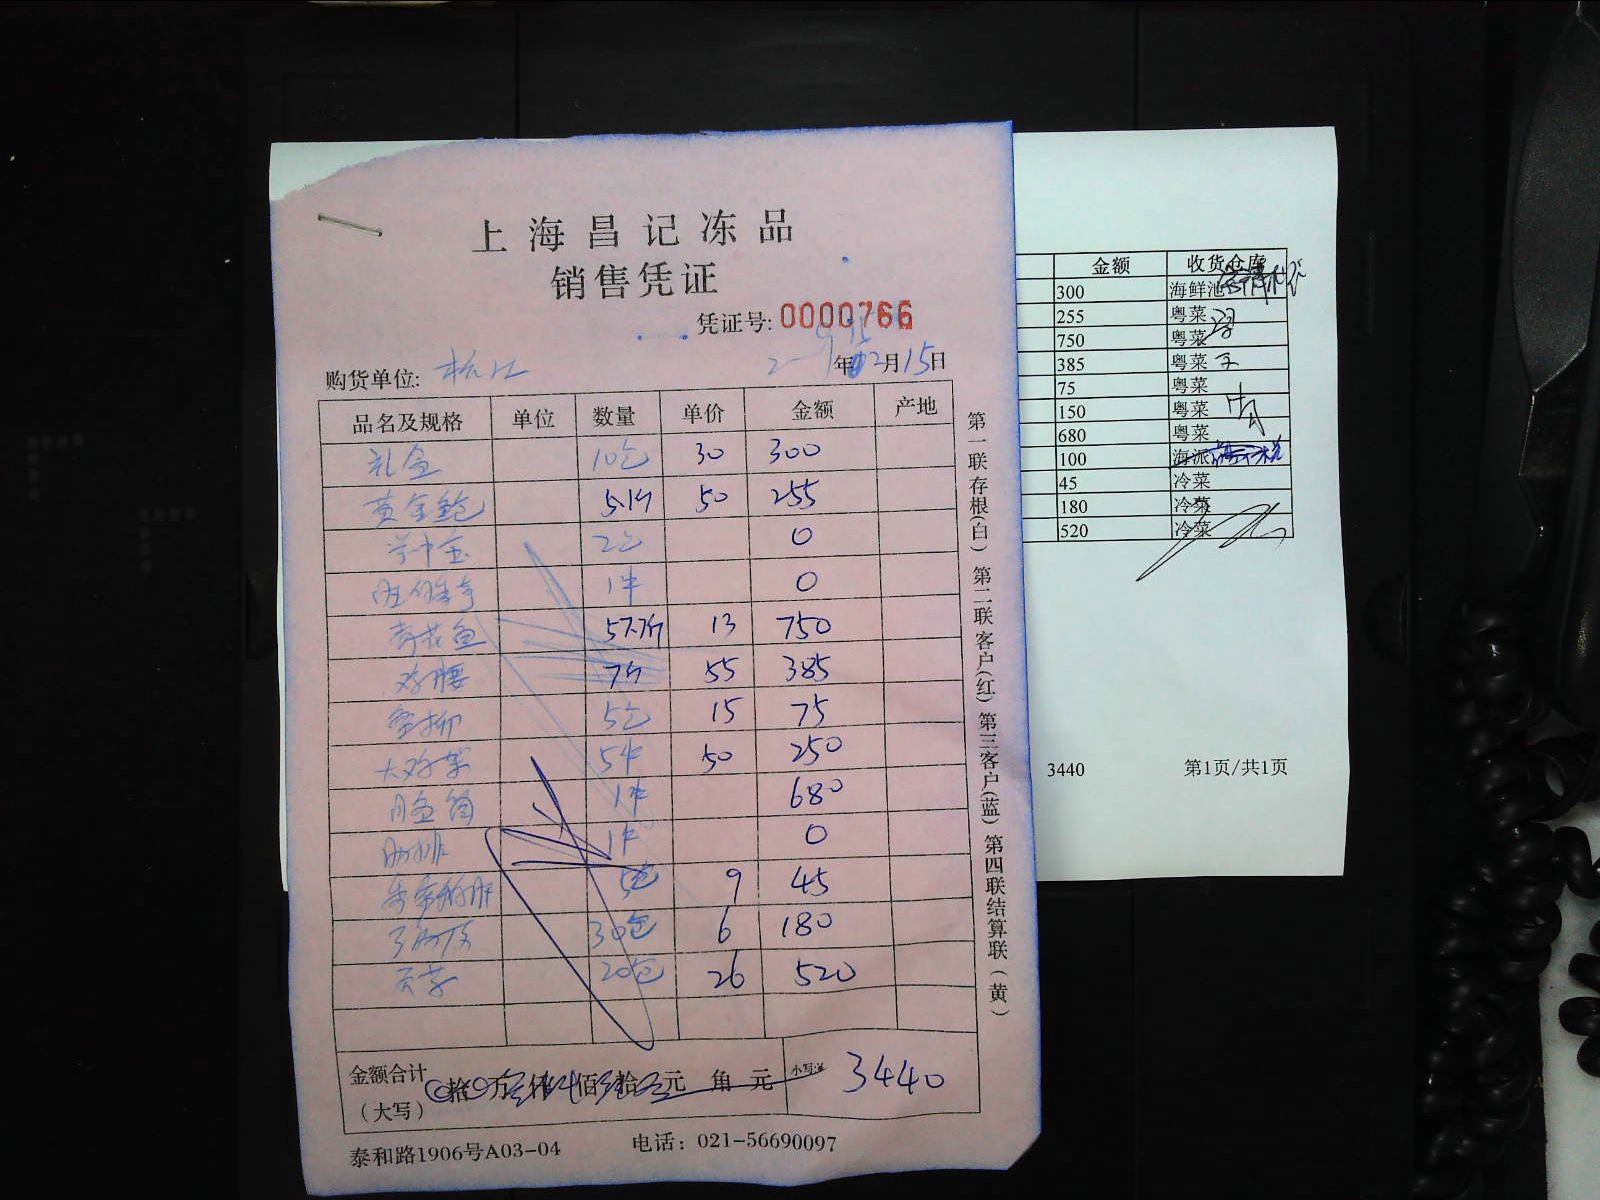 上海昌记冻品
销售凭证
凭证号: 0000766
购货单位: 松江 年02月15日
品名及规格 单位 数量 单价 金额 产地
礼盒 10包 30 300
黄金鲍 5.1斤 50 255
2包 0
1件 0
57.7斤 13 750
7斤 55 385
5包 15 75
5件 50 250
1件 680
肋排 1件 0
5包 9 45
30包 6 180
贡菜 20包 26 520
金额合计
(大写) 拾 万 仟 佰 拾 元 角 元 小写:¥ 3440
泰和路1906号A03-04 电话: 021-56690097
第一联存根(白) 第二联客户(红) 第三客户(蓝) 第四联结算联(黄)
金额 收货仓库
300 海鲜池
255 粤菜
750 粤菜
385 粤菜
75 粤菜
150 粤菜
680 粤菜
100 海派
45 冷菜
180 冷菜
520 冷菜
3440 第1页/共1页